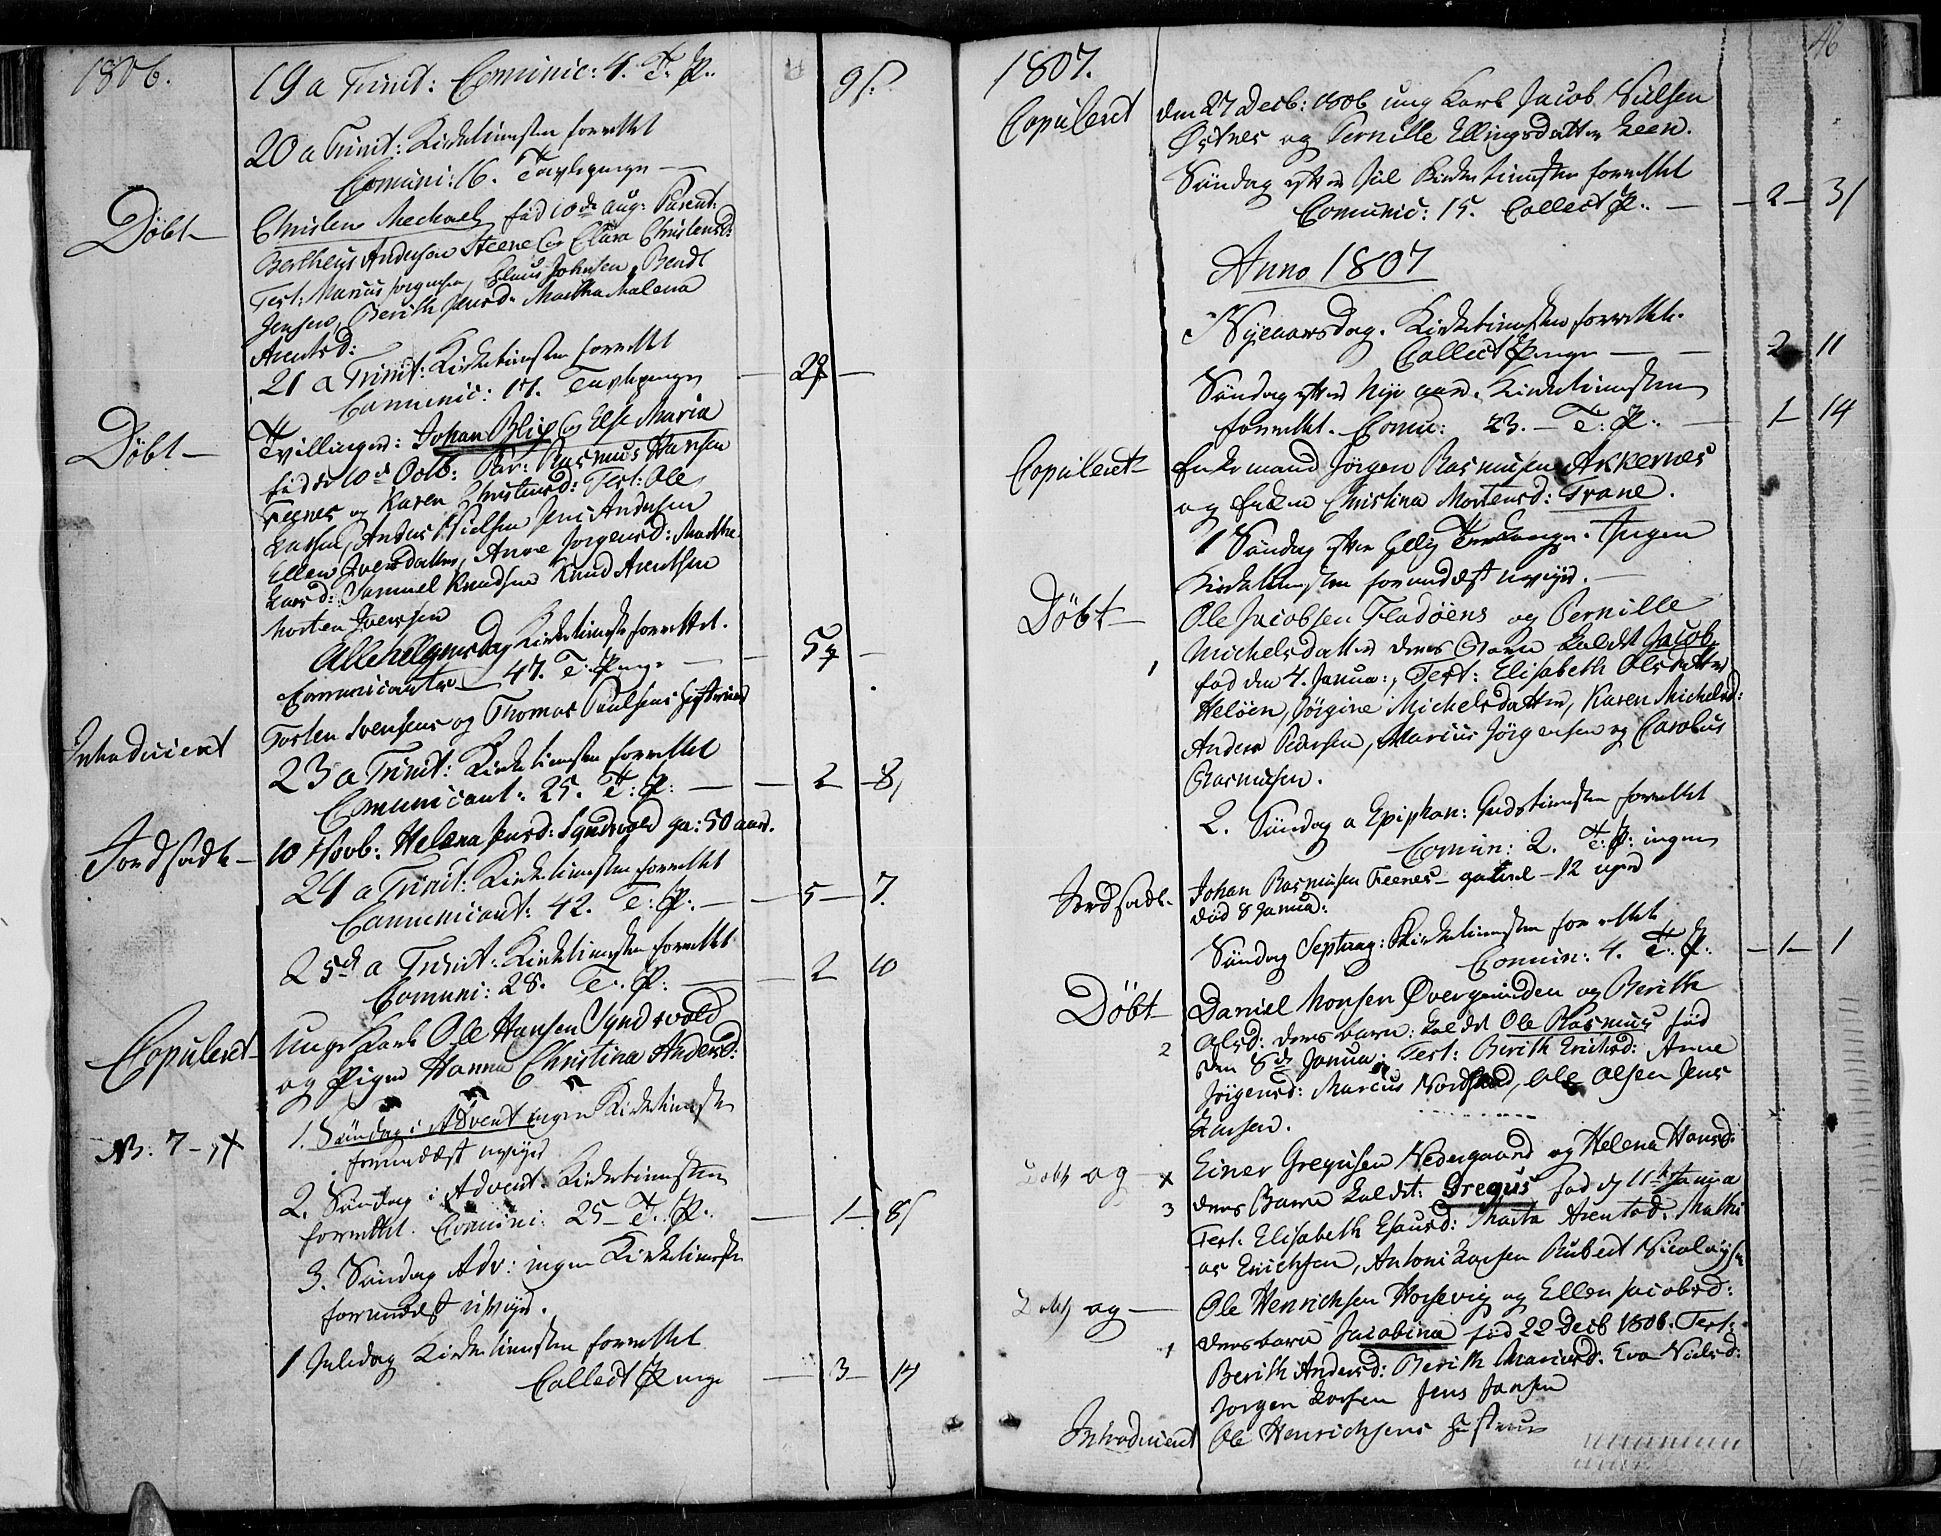 1806.
19 a Trinit: Cominic: 4. T. P. 9ß.
20 a Trinit: Kirketienesten forrettet
Comuni: 16. Tavlepenge —
Døbt — Christen Mechael fød 10de Aug: Parent:
Bertheus Andersen Steene og Clara Christensd:
Test: Marius Jørgensen, Claus Johnsen, Bendt
Jensen, Berith Jensd: Martha Malena
Arentsd:
21 a Trinit: Kirketienesten forrettet
Comunic: 17. Tavlepenge — 2 —
Døbt — Tvillinger: Johan Blix og Else Maria
fødde 10de Octb: Par: Rasmus Hansen
Feenes og Karen Christensd: Test: Ole
Larsen, Anders Nielsen Jens Andersen
Ellen Iversdatter, Anne Jørgensd: Marthe
Larsd: Samuel Knudsen Knud Arentsen
Morten Iversen
Allehelgensdag Kirketieneste forrettet.
Communicanter 47. T: Penge — 5
Introduceret Torsten Svensens og Thomas Poulsens Hustruer
23 a Trinit: Kirketienesten forrettet
Comunicant: 25. T: P: — 2 — 8,
Jordfæstet — 10 Novb: Helena Jensd: Syndvold ga: 50 aar.
24 a Trinit: Kirketienesten forrettet
Communicant: 42. T: P: — 5 — 7.
25de a Trinit: Kirketienesten forrettet
Comuni: 28. T. P: — 2 10
Copuleret — Unge Karl Ole Hansen Syndvold
og Pigen Hanna Christina Andersd:
1. Søndag i Advent ingen Kirketieneste
NB: 7 — formedelst uveyr
2. Søndag i Advent Kirketienesten
forrettet. Comuni: 25 — T. P. — 1 — 8
3. Søndag Adv: ingen Kirketieneste
formedelst uveyr.
1 Juledag Kirketienesten forrettet
Collect Penge — 3 — 14
46
1807.
Copuleret den 27 Decb: 1806 ung Karl Jacob Nielsen
Østnes og Pernille Ellingsdatter Leen.
Søndag efter Jul Kirketienesten forrettet
Comunic: 15. Collect P. — 2 — 3
Anno 1807
Nyeaarsdag. Kirketienesten forrettet.
Collect Penge — 2 11
Søndag efter Nye aar. Kirketienesten
forrettet. Comu: 23. — T: P: — 1 — 14
Copuleret — Enkemand Jørgen Rasmusen Akkernes
og Enken Christina Mortensd: Trane.
1 Søndag efter Hellig Tre Konger. Ingen
Kirketienesten formedelst uveyr. —
Døbt — Ole Jacobsen Fladøens og Pernille
Michelsdatter deres Barn kaldet Jacob
1 fød den 4. Janua:, Test: Elisabeth Olsdatter
Heløen, Jørgine Michelsdatter, Karen Michelsd:
Anders Pedersen, Marius Jørgensen og Carolus
Rasmusen.
2. Søndag a Epiphan: Gudstienesten forrettet
Comun: 2. T: P: ingen
Jordfæst. Johan Rasmusen Feenes — gammel — 12 uger
død 8 Janua:
Søndag Septuag: Kirketienesten forrettet
Comun: 4. T. P. — 1 — 1
Døbt — Daniel Monsen Øvergrunden og Berith
Olsd: deres barn: kaldet Ole Rasmus fød
2 den 8de Janua: Test: Berith Erichsd: Anne
Jørgensd: Marcus Nordsand, Ole Olsen Jens
Larsen.
Døbt og — x Einer Gregusen Nedregaard og Helena Hansd:
3 deres Barn kaldet: Gregus fød d 11te Janua
Test. Elisabeth Esausd: Marta Arentsd: Mathi
as Erichsen, Antoni Larsen Rubert Nicolaysen
Døbt og — Ole Henrichsen Horsevig og Ellen Jacobsd:
1 deres barn Jacobina fød 22 Decb 1806. Test:
Berith Andersd: Berith Mariusd: Eva Nielsd:
Jørgen Larsen Jens Jansen
Introduceret Ole Henrichsens Hustrue